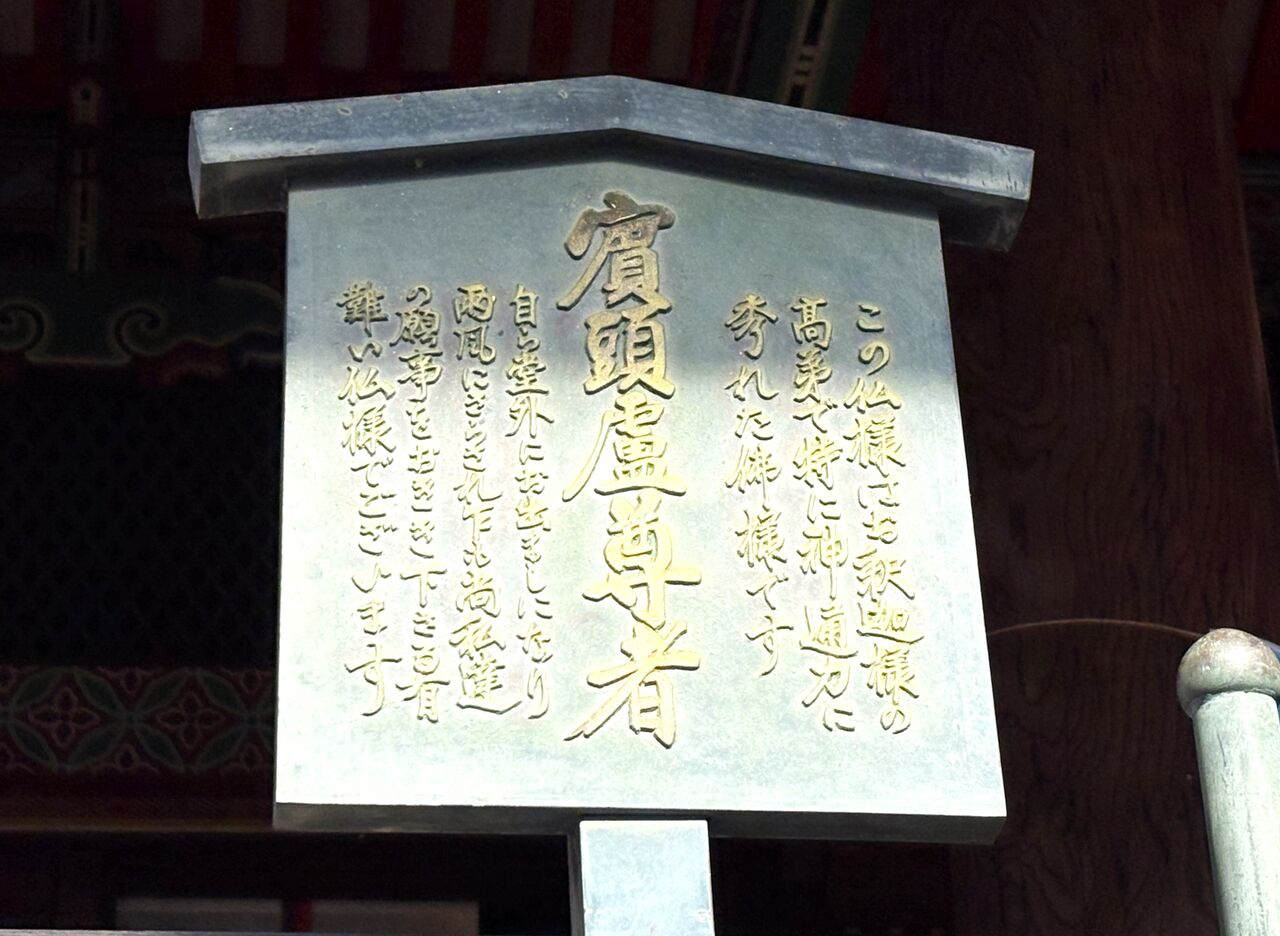 この仏様はお釈迦様の
髙弟で特に神通力に
秀れた佛様です
賓頭盧尊者
自ら堂外にお出ましになり
雨風にさらされ乍も尚私達
の願事をおきき下さる有
難い仏様でございます